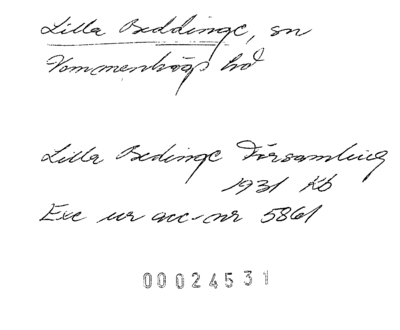 Lilla Beddinge, sn
Vemmenhögs hd
Lilla Bedinge Församling
1931 Kb
Exc ur acc-nr 5861
00024531